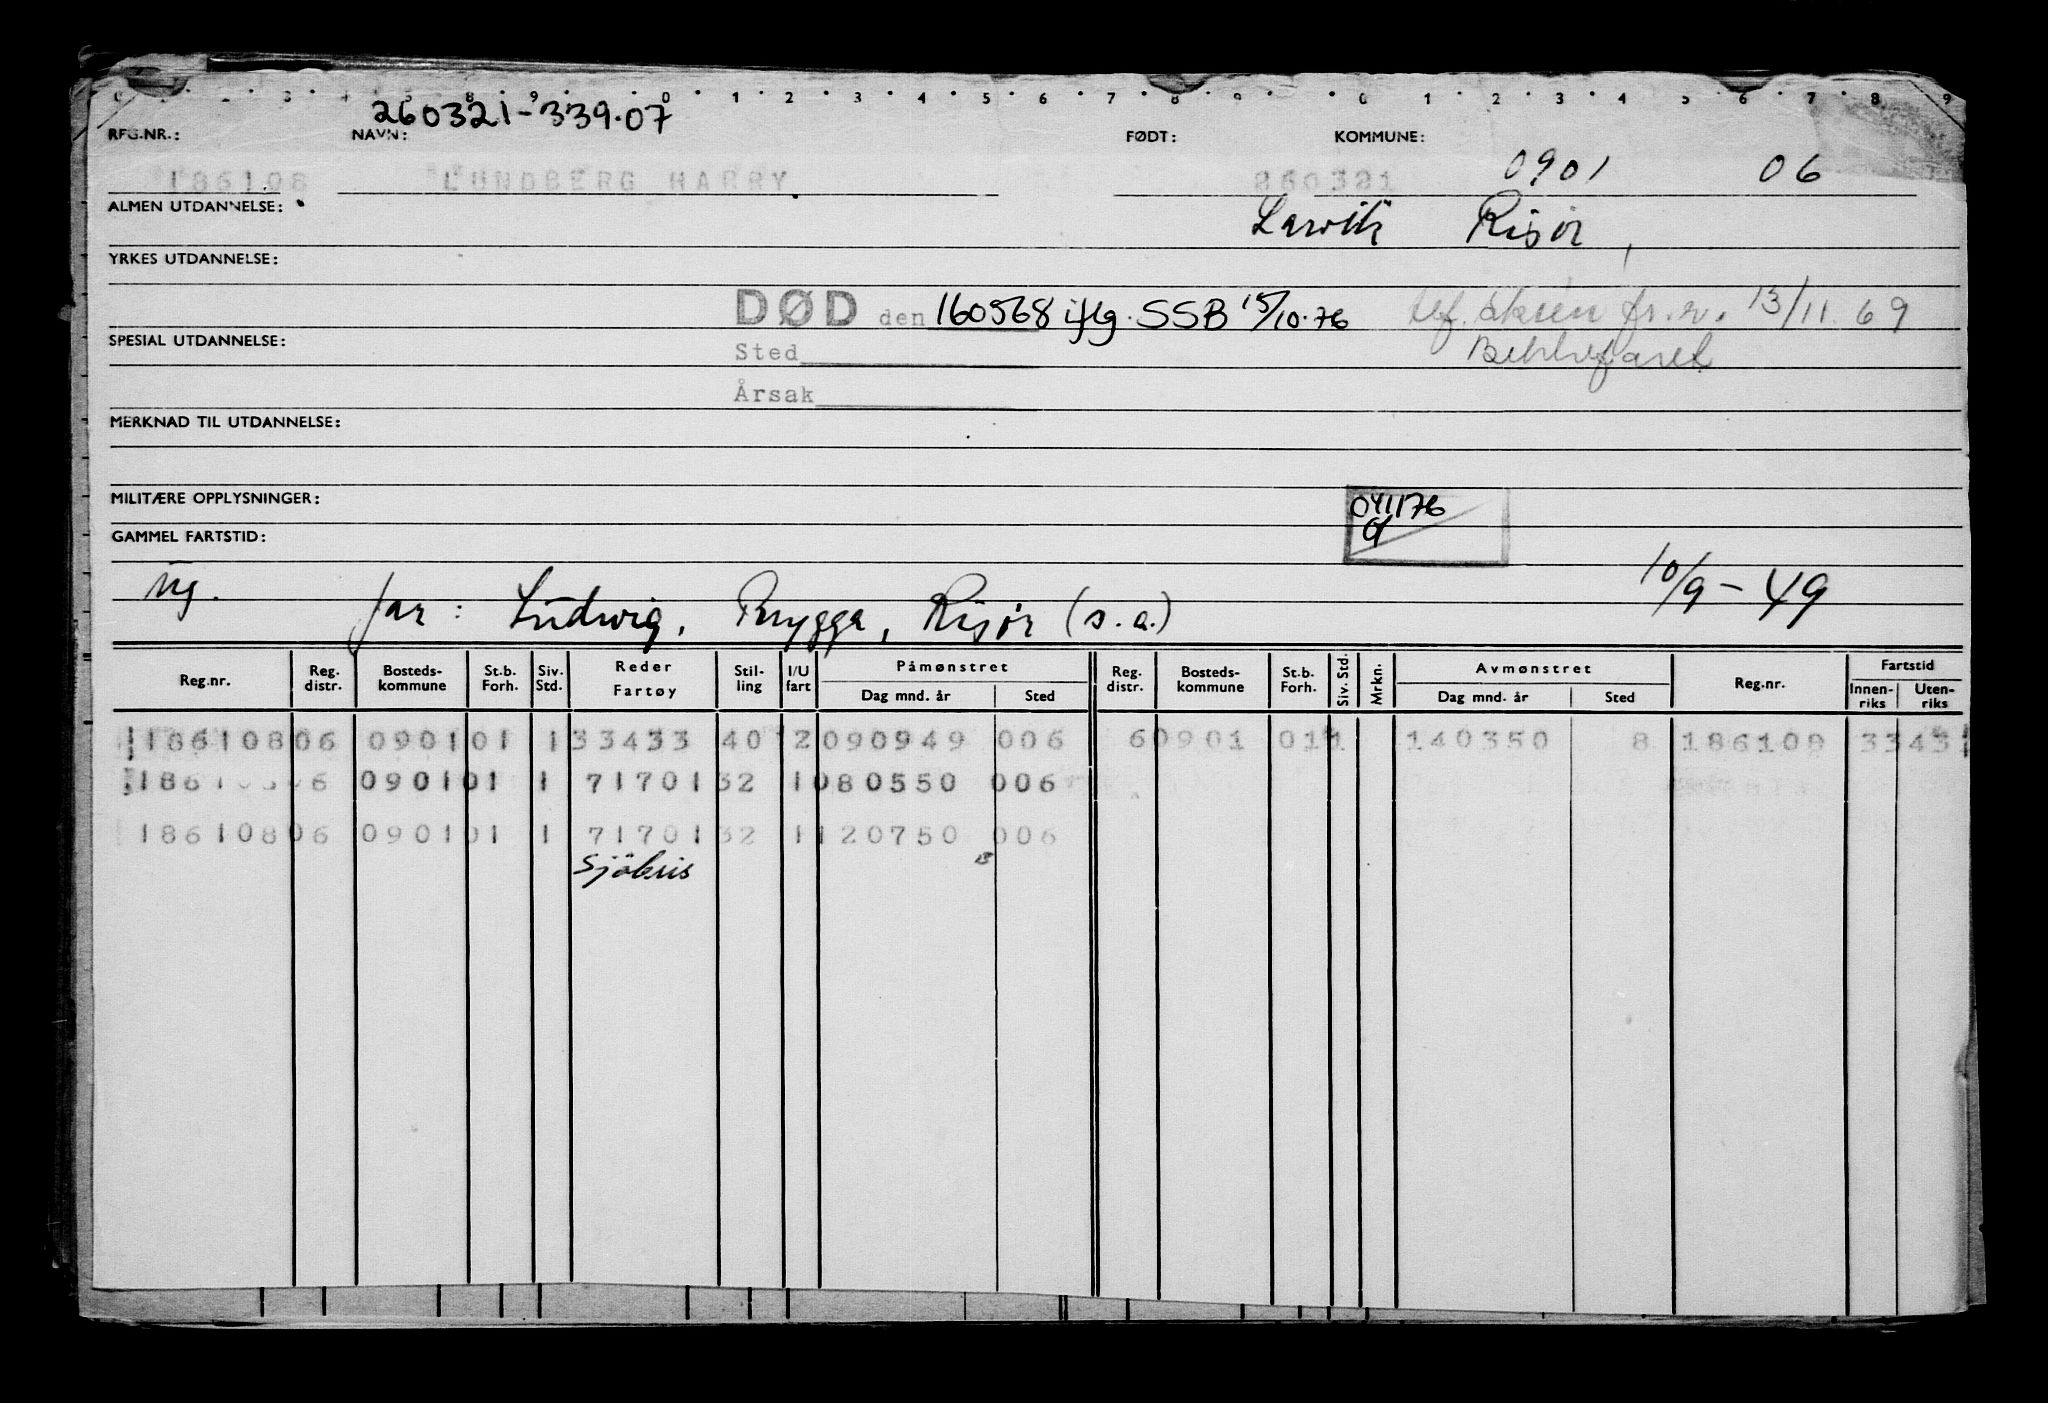 260321-339.07
RFG.NR.: NAVN: FØDT: KOMMUNE:
186108 LUNDBERG HARRY 260321 0901 06
ALMEN UTDANNELSE: Larvik Risør
YRKES UTDANNELSE:
DØD den 160568 iflg. SSB 15/10.76 13/11.69
SPESIAL UTDANNELSE: Sted
Årsak
MERKNAD TIL UTDANNELSE:
MILITÆRE OPPLYSNINGER: 041176
GAMMEL FARTSTID:
ug. far: Ludwig, Brygga, Risør (s.a.) 10/9-49
Reg.nr. Reg. distr. Bosteds-kommune St.b. Forh. Siv. Std. Reder Fartøy Stil-ling I/U fart Påmønstret Dag mnd. år Sted Reg. distr. Bosteds-kommune St.b. Forh. Siv. Std. Mrkn. Avmønstret Dag mnd. år Sted Reg.nr. Fartstid Innen-riks Uten-riks
186108 06 0901 01 1 33433 40 2 090949 006 6 0901 01 1 140350 8 186108 33433
186108 06 0901 01 1 71701 32 1 080550 006
186108 06 0901 01 1 71701 32 1 120750 006
Sjöbris